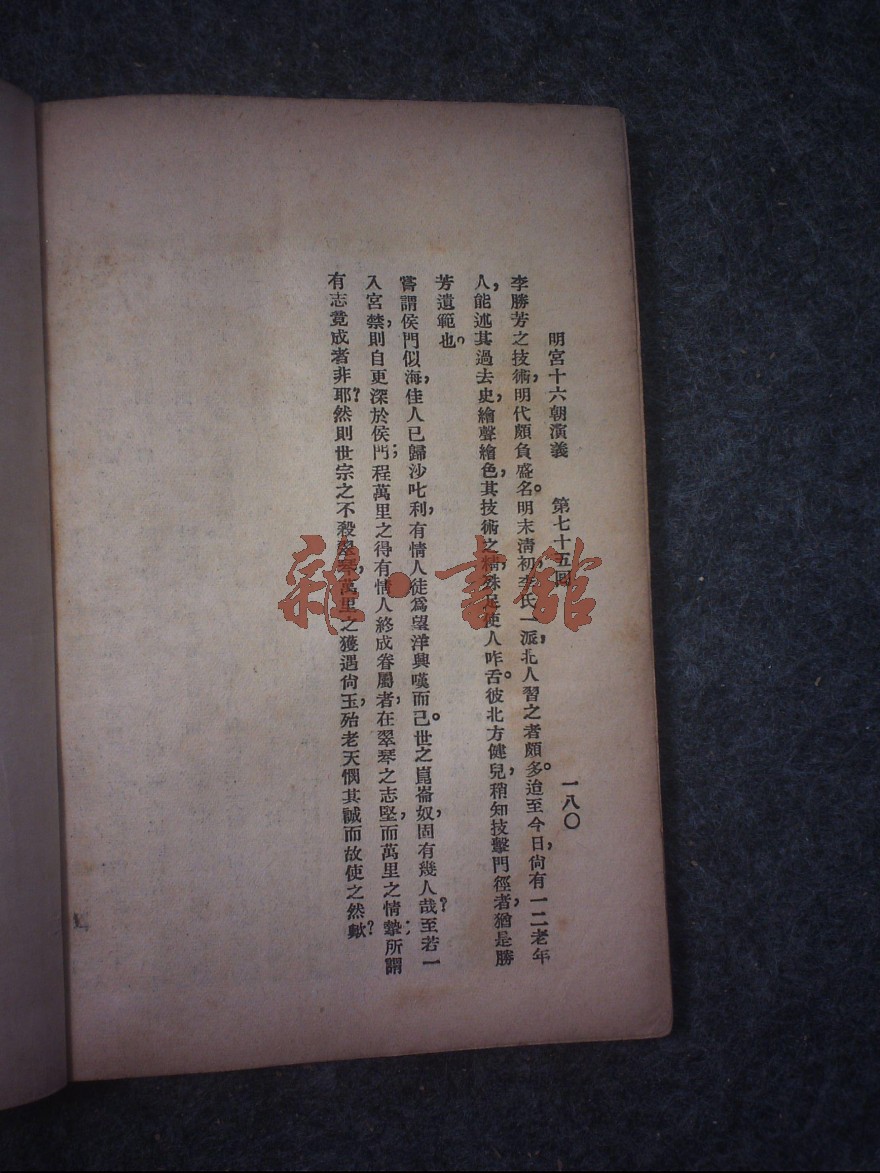 明宮十六朝演義 第七十五回 一八〇
李勝芳之技術，明代頗負盛名。明末清初，李氏一派，北人習之者頗多。迨至今日，尙有一二老年
人，能述其過去史，繪聲繪色，其技術之精，殊足使人咋舌。彼北方健兒，稍知技擊門徑者，猶是勝
芳遺範也。
嘗謂侯門似海，佳人已歸沙叱利，有情人徒爲望洋興嘆而已。世之崑崙奴，固有幾人哉？至若一
入宮禁，則自更深於侯門；程萬里之得有情人終成眷屬者，在翠琴之志堅，而萬里之情摯；所謂
有志竟成者非耶？然則世宗之不殺翠琴，萬里之獲遇尙玉，殆老天憫其誠而故使之然歟？
雜·書館